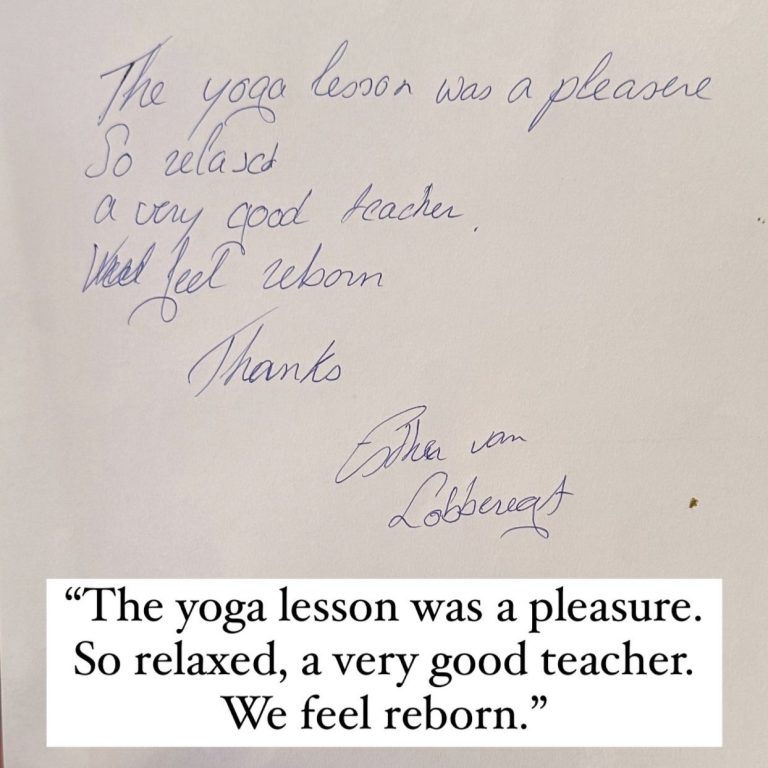 The yoga lesson was a pleasere
So relaxd
a very good teacher.
feel reborn
Thanks
Esther van
Lobberegt
“The yoga lesson was a pleasure.
So relaxed, a very good teacher.
We feel reborn.”